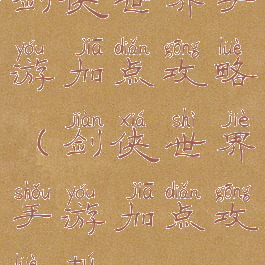 yóu jiā diǎn gōng lüè
游加点攻略
jiàn xiá shì jiè
(剑侠世界
shǒu yóu jiā diǎn gōng
手游加点攻